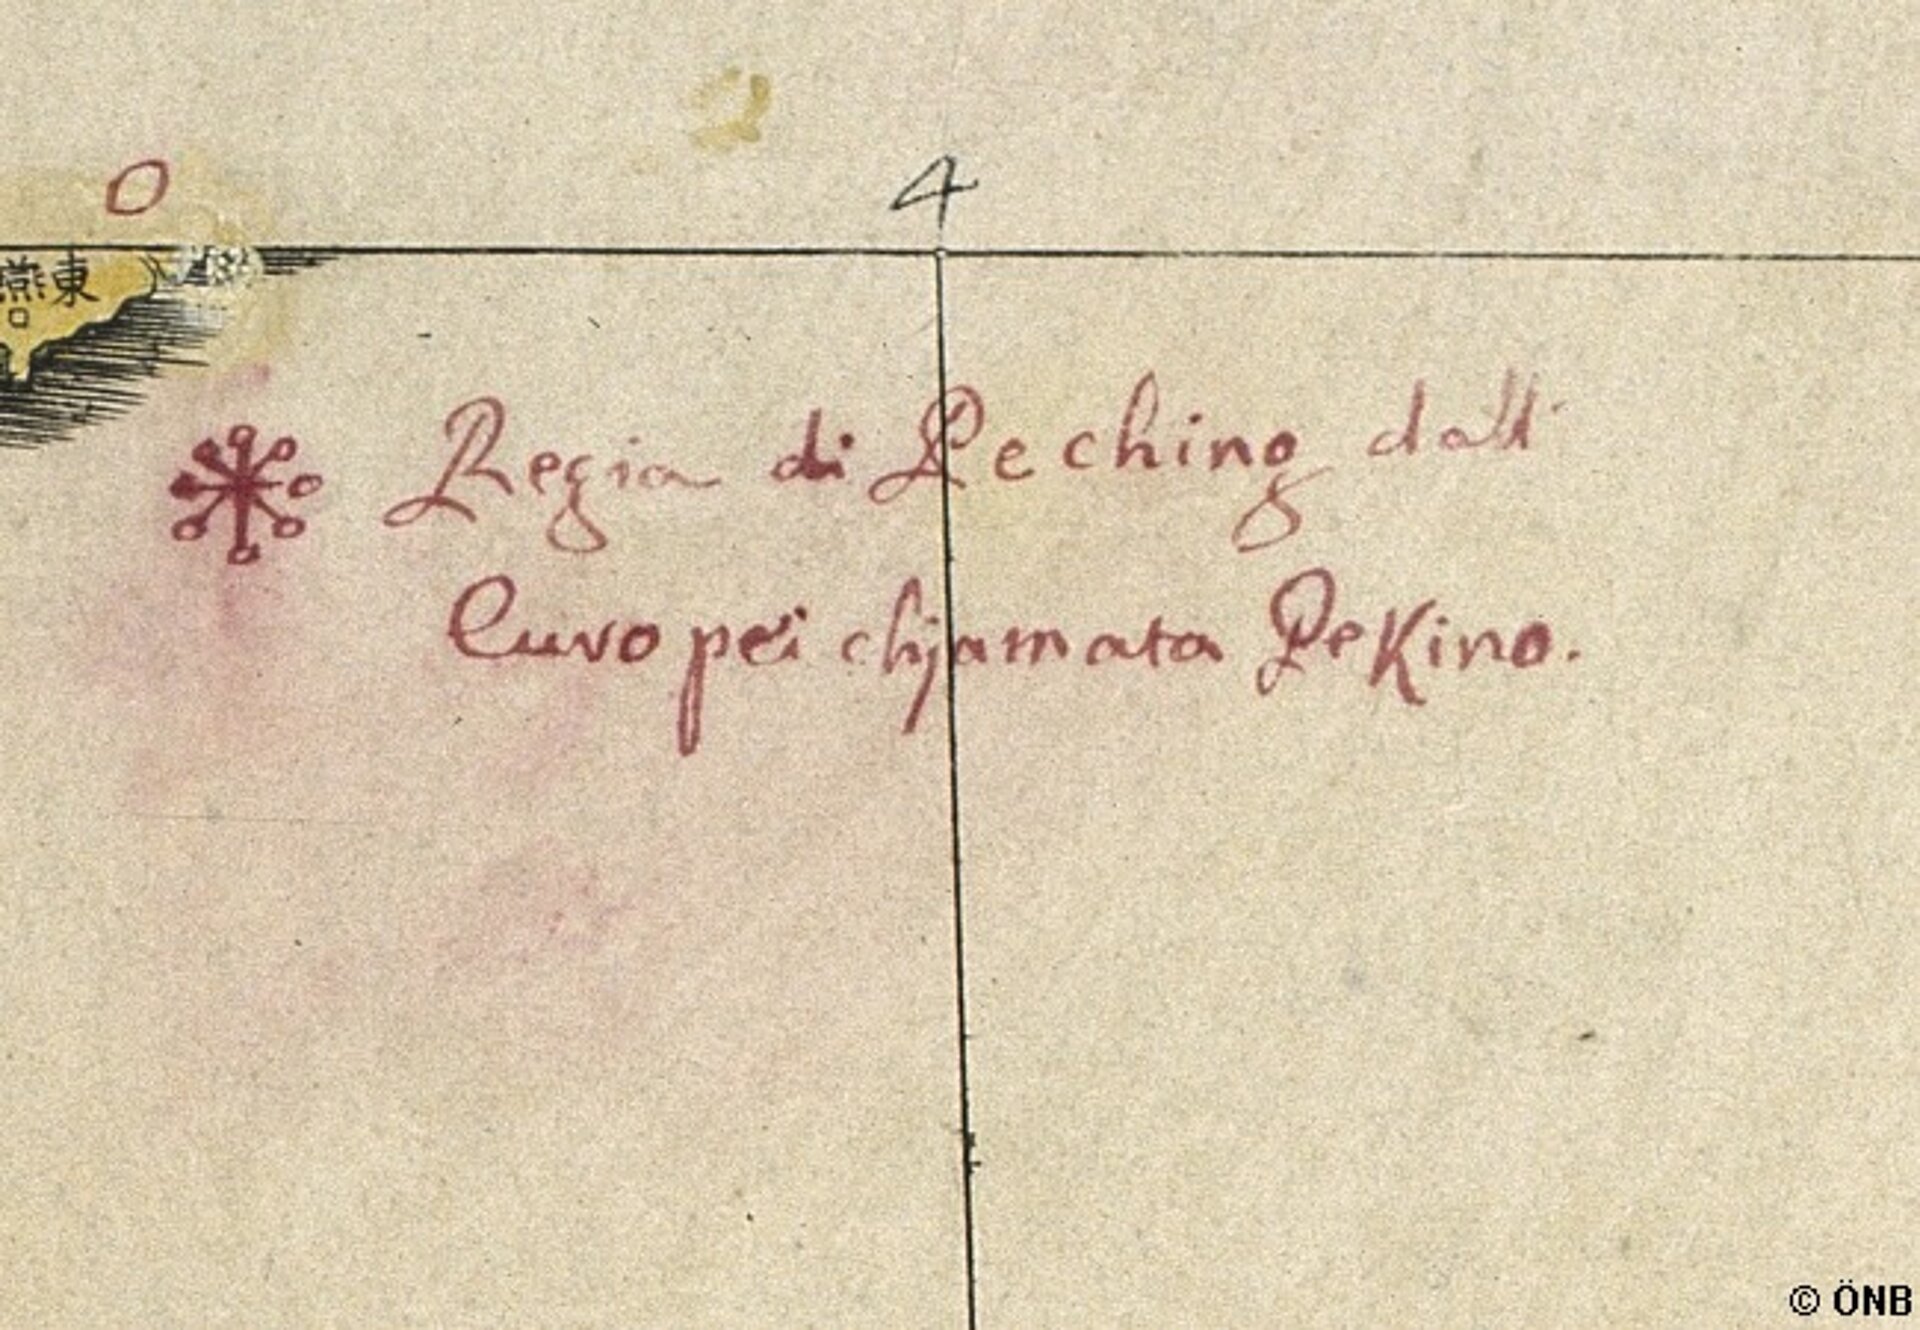 0
4
燕東
Regia di Peching dalli
Europei chjamata PeKino.
© ÖNB